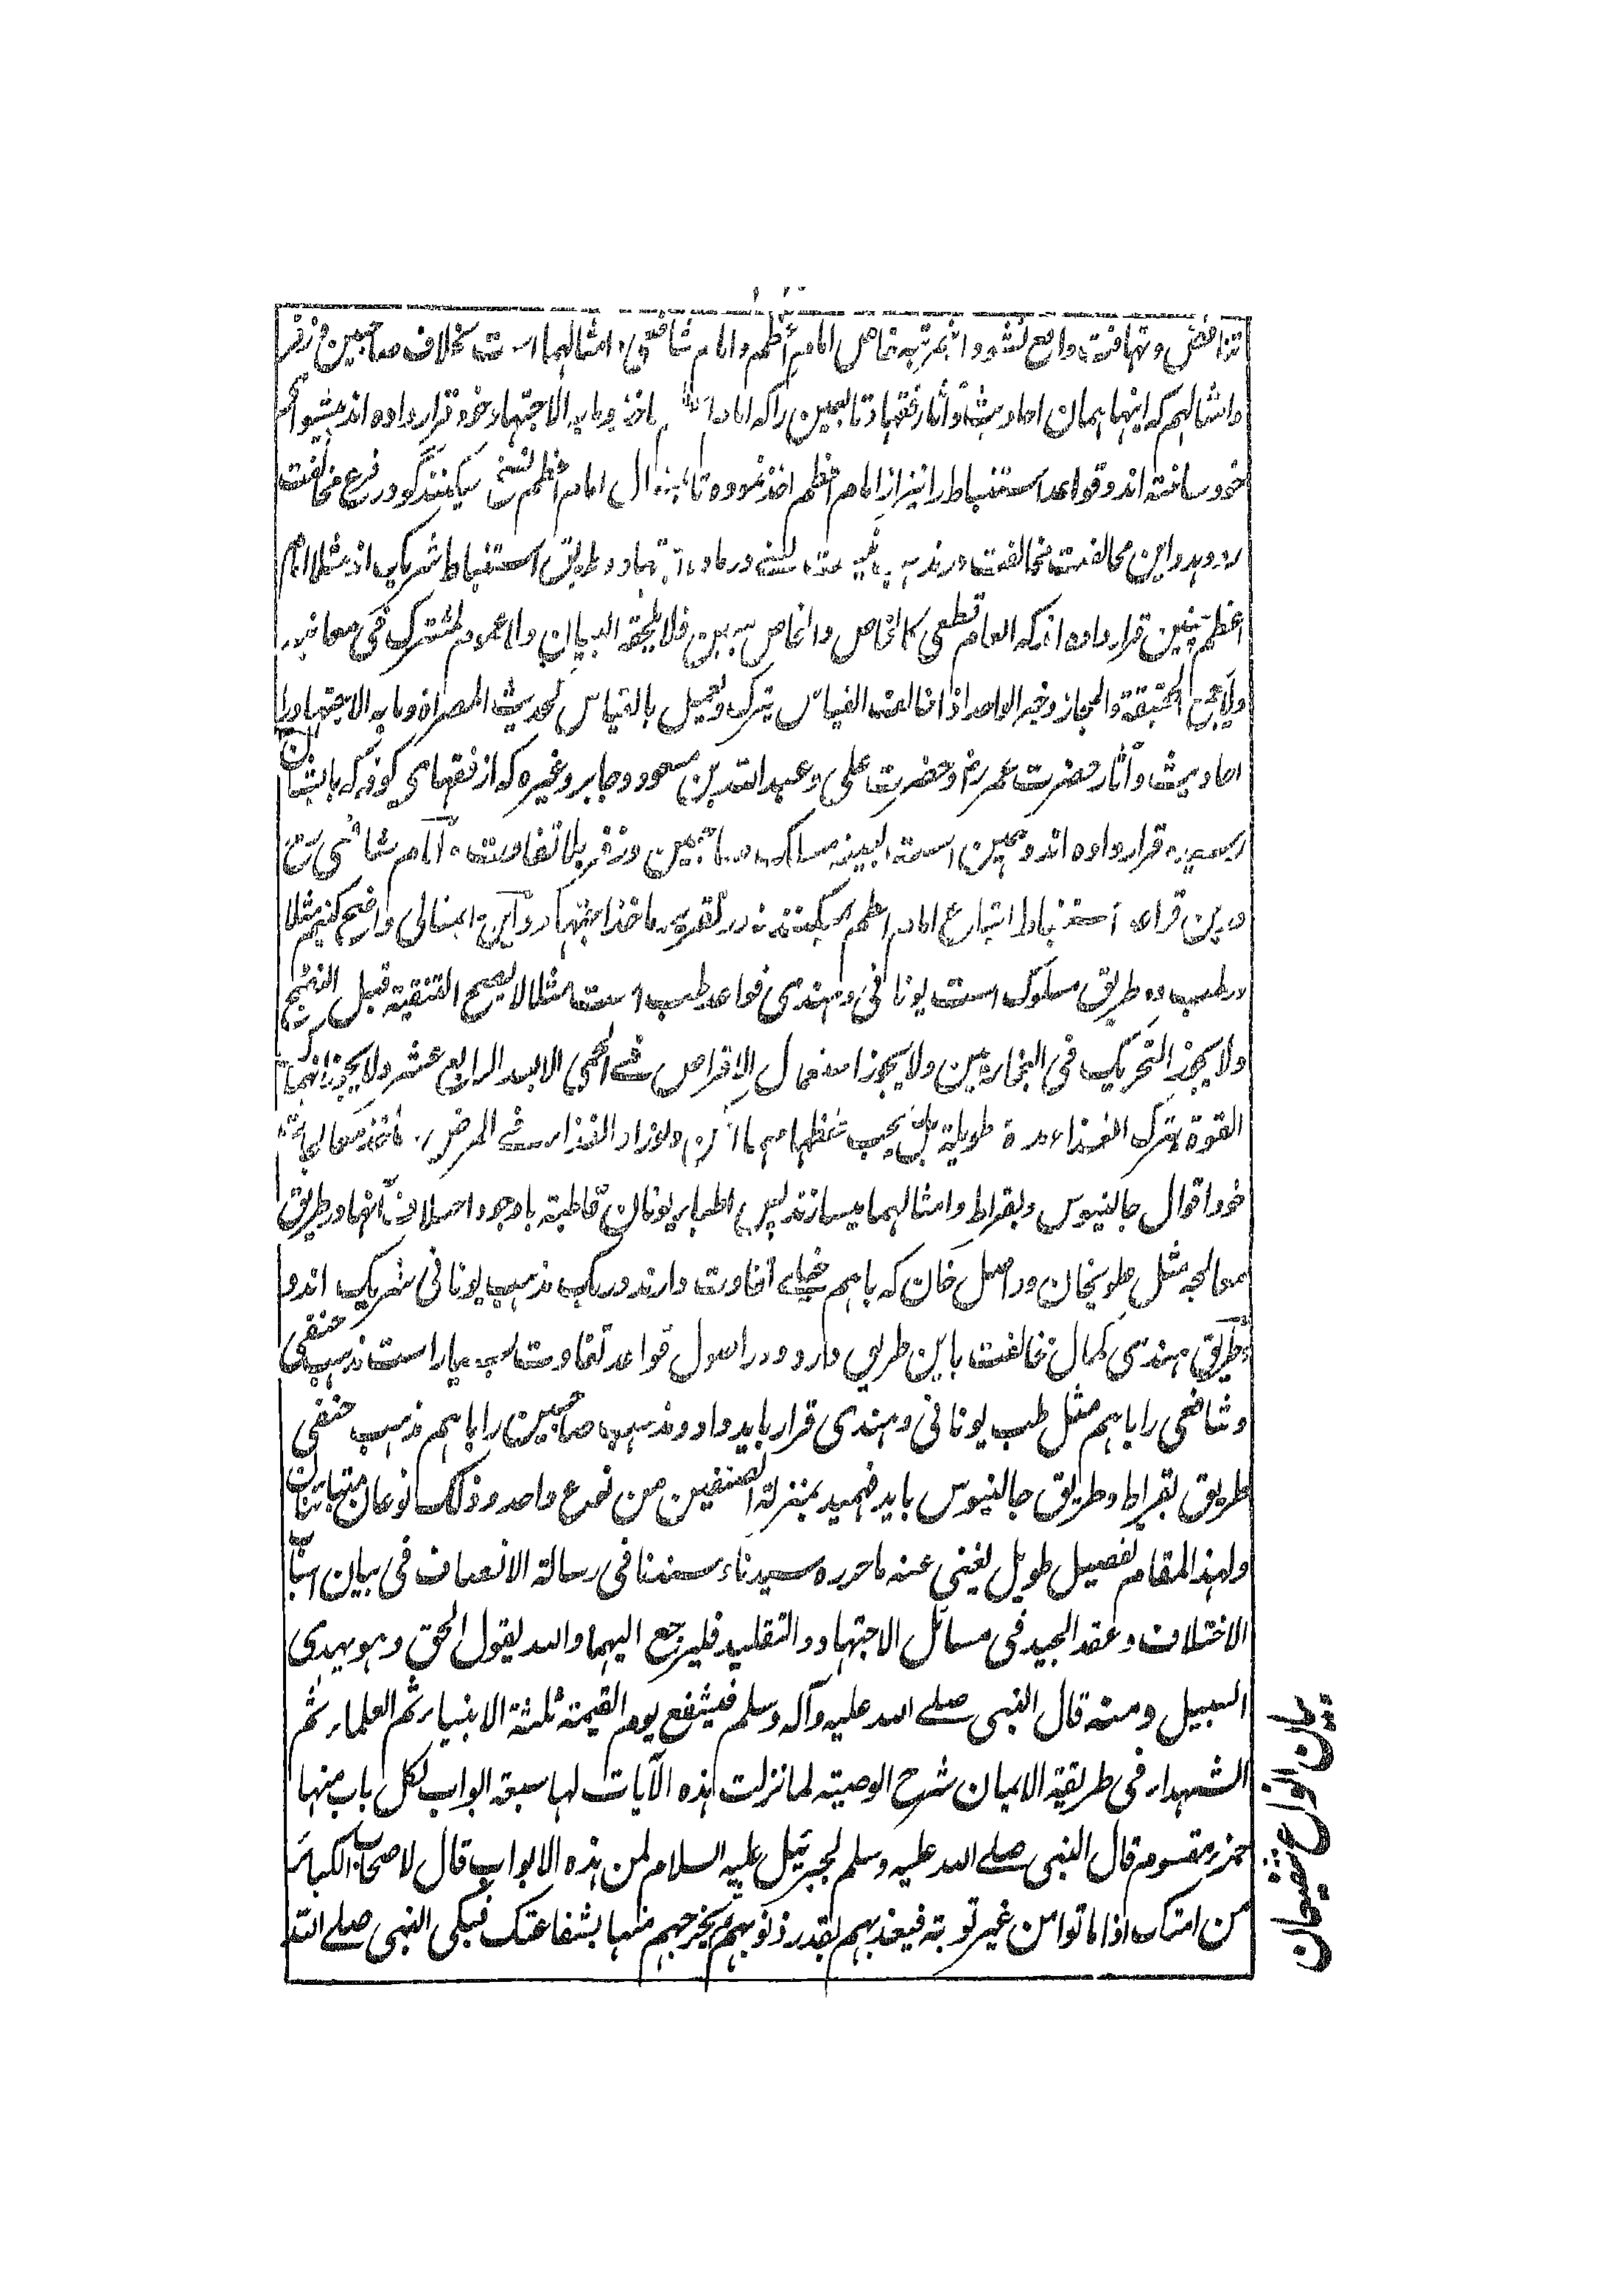 تناقض و تهافت واقع نشود و این مرتبه خاص امام اعظم و امام شافعی و امثالهما است بخلاف صاحبین و زفر
و امثالهم که اینها همان احادیث و آثار فقهاء تابعین را که امام ماخذ و ما به الاجتهاد خود قرار داده اند پیشوای
خود ساخته اند و قواعد استنباط را نیز از امام اعظم اخذ نموده امام اعظم میکنند گو در فرع مخالفت
رو دهد و این مخالفت مخالفت در مذهب نیست یعنی در ماده اجتهاد و طریق استنباط شریک اند مثلا امام
اعظم چنین قرار داده اند که العام قطعی کالخاص والخاص بین فلا یلحقه البیان ولا عموم للمشترک فی معانیه
ولا یجمع الحقیقة والمجاز وخبر الواحد اذا خالف القیاس یترک ویعمل بالقیاس لحدیث المصراة وما به الاجتهاد را
احادیث و آثار حضرت عمر رض و حضرت علی و عبد الله بن مسعود و جابر وغیره که از فقهای کوفه که بایشان
رسیده قرار داده اند و همین است بعینه مسلک صاحبین و زفر بلا تفاوت و امام شافعی رح
درین قواعد استنباط اتباع امام اعظم نمیکنند نه در تقریر ماخذ اجتهاد و این را بمثالی واضح کنیم مثلا
در طب دو طریق مسلوک است یونانی و هندی قواعد طب است مثلا لا یصح التنقیة قبل النضج
ولا یجوز التحریک فی البحارین ولا یجوز استعمال الاقراص فی الحمی الا بعد الرابع عشر ولا یجوز انهاک
القوة بترک الغذاء مدة طویلة بل یجب حفظها مهما امکن ولو زاد الغذاء فی المرض ماخذ معالجات
خود اقوال جالینوس و بقراط و امثالهما میسازند پس اطباء یونان قاطبة باوجود اختلاف آنها در طریق
معالجه مثل علویخان و واصل خان که باهم خیلی تفاوت دارند در یک مذهب یونانی شریک اند و
طریق هندی کمال مخالفت باین طریق دارد و در اصول قواعد تفاوت بسیار است مذهب حنفی
و شافعی را باهم مثل طب یونانی و هندی قرار باید داد و مذهب صاحبین را باهم مذهب حنفی
طریق بقراط و طریق جالینوس باید فهمید بمنزلة الصنفین من نوع واحد وذلک نوعان متباینان
ولهذا المقام تفصیل طویل یغنی عنه ما حرره سیدنا و سندنا فی رسالة الانصاف فی بیان اسباب
الاختلاف و عقد الجید فی مسائل الاجتهاد والتقلید فلیرجع الیهما والله یقول الحق وهو یهدی
السبیل و منه قال النبی صلے الله علیه وآله وسلم فیشفع یوم القیمة ثلثة الانبیاء ثم العلماء ثم
الشهداء فی طریقة الایمان شرح الوصیة لما نزلت هذه الآیات لها سبعة ابواب لکل باب منها
جزء مقسوم قال النبی صلے الله علیه وسلم لجبرئیل علیه السلام لمن هذه الابواب قال لاصحاب الکبائر
من امتک اذا ماتوا من غیر توبة فیعذبهم بقدر ذنوبهم ثم یخرجهم منها بشفاعتک فبکی النبی صلے الله
بیان انواع شفیعان